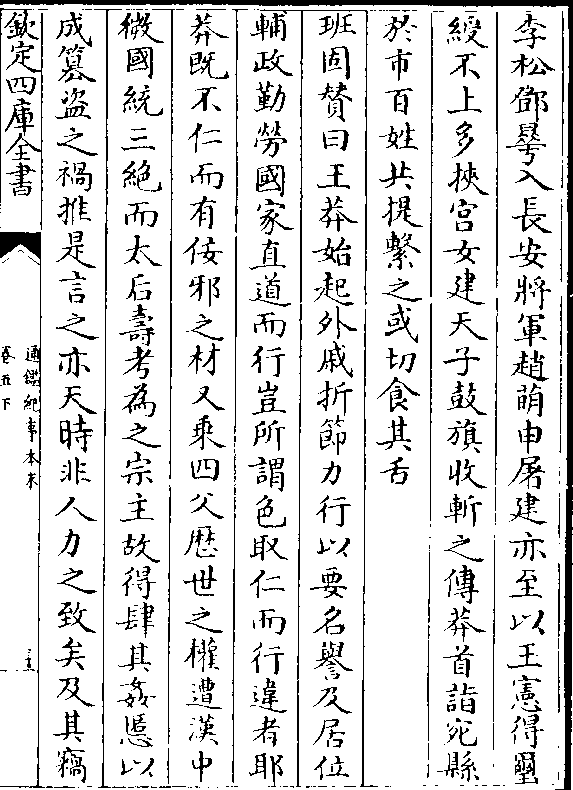 李松鄧曅入長安將軍趙萌申屠建亦至以王憲得璽
綬不上多挾宫女建天子鼓旗收斬之傳莽首詣宛縣
於市百姓共提繫之或切食其舌
班固贊曰王莽始起外戚折節力行以要名譽及居位
輔政勤勞國家直道而行豈所謂色取仁而行違者耶
莽既不仁而有佞邪之材又乘四父歴世之權遭漢中
微國統三絶而太后壽考為之宗主故得肆其姦慝以
成簒盗之禍推是言之亦天時非人力之致矣及其竊
欽定四庫全書
通鑑紀事本末
卷五下